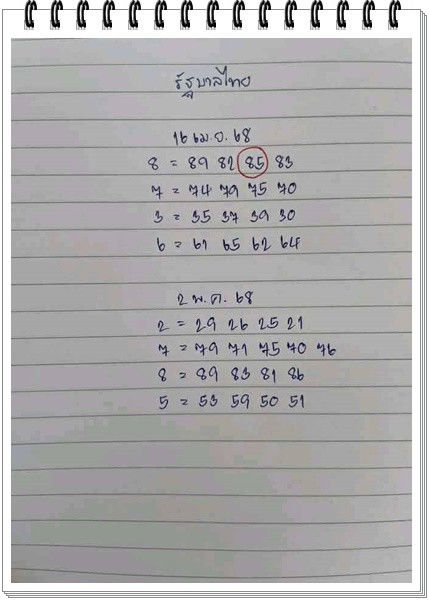 รัฐบาลไทย
16 เม.ย. 68
8 = 89 82 85 83
7 = 74 79 75 70
3 = 35 37 39 30
6 = 61 65 62 64
2 พ.ค. 68
2 = 29 26 25 21
7 = 79 71 75 70 76
8 = 89 83 81 86
5 = 53 59 50 51